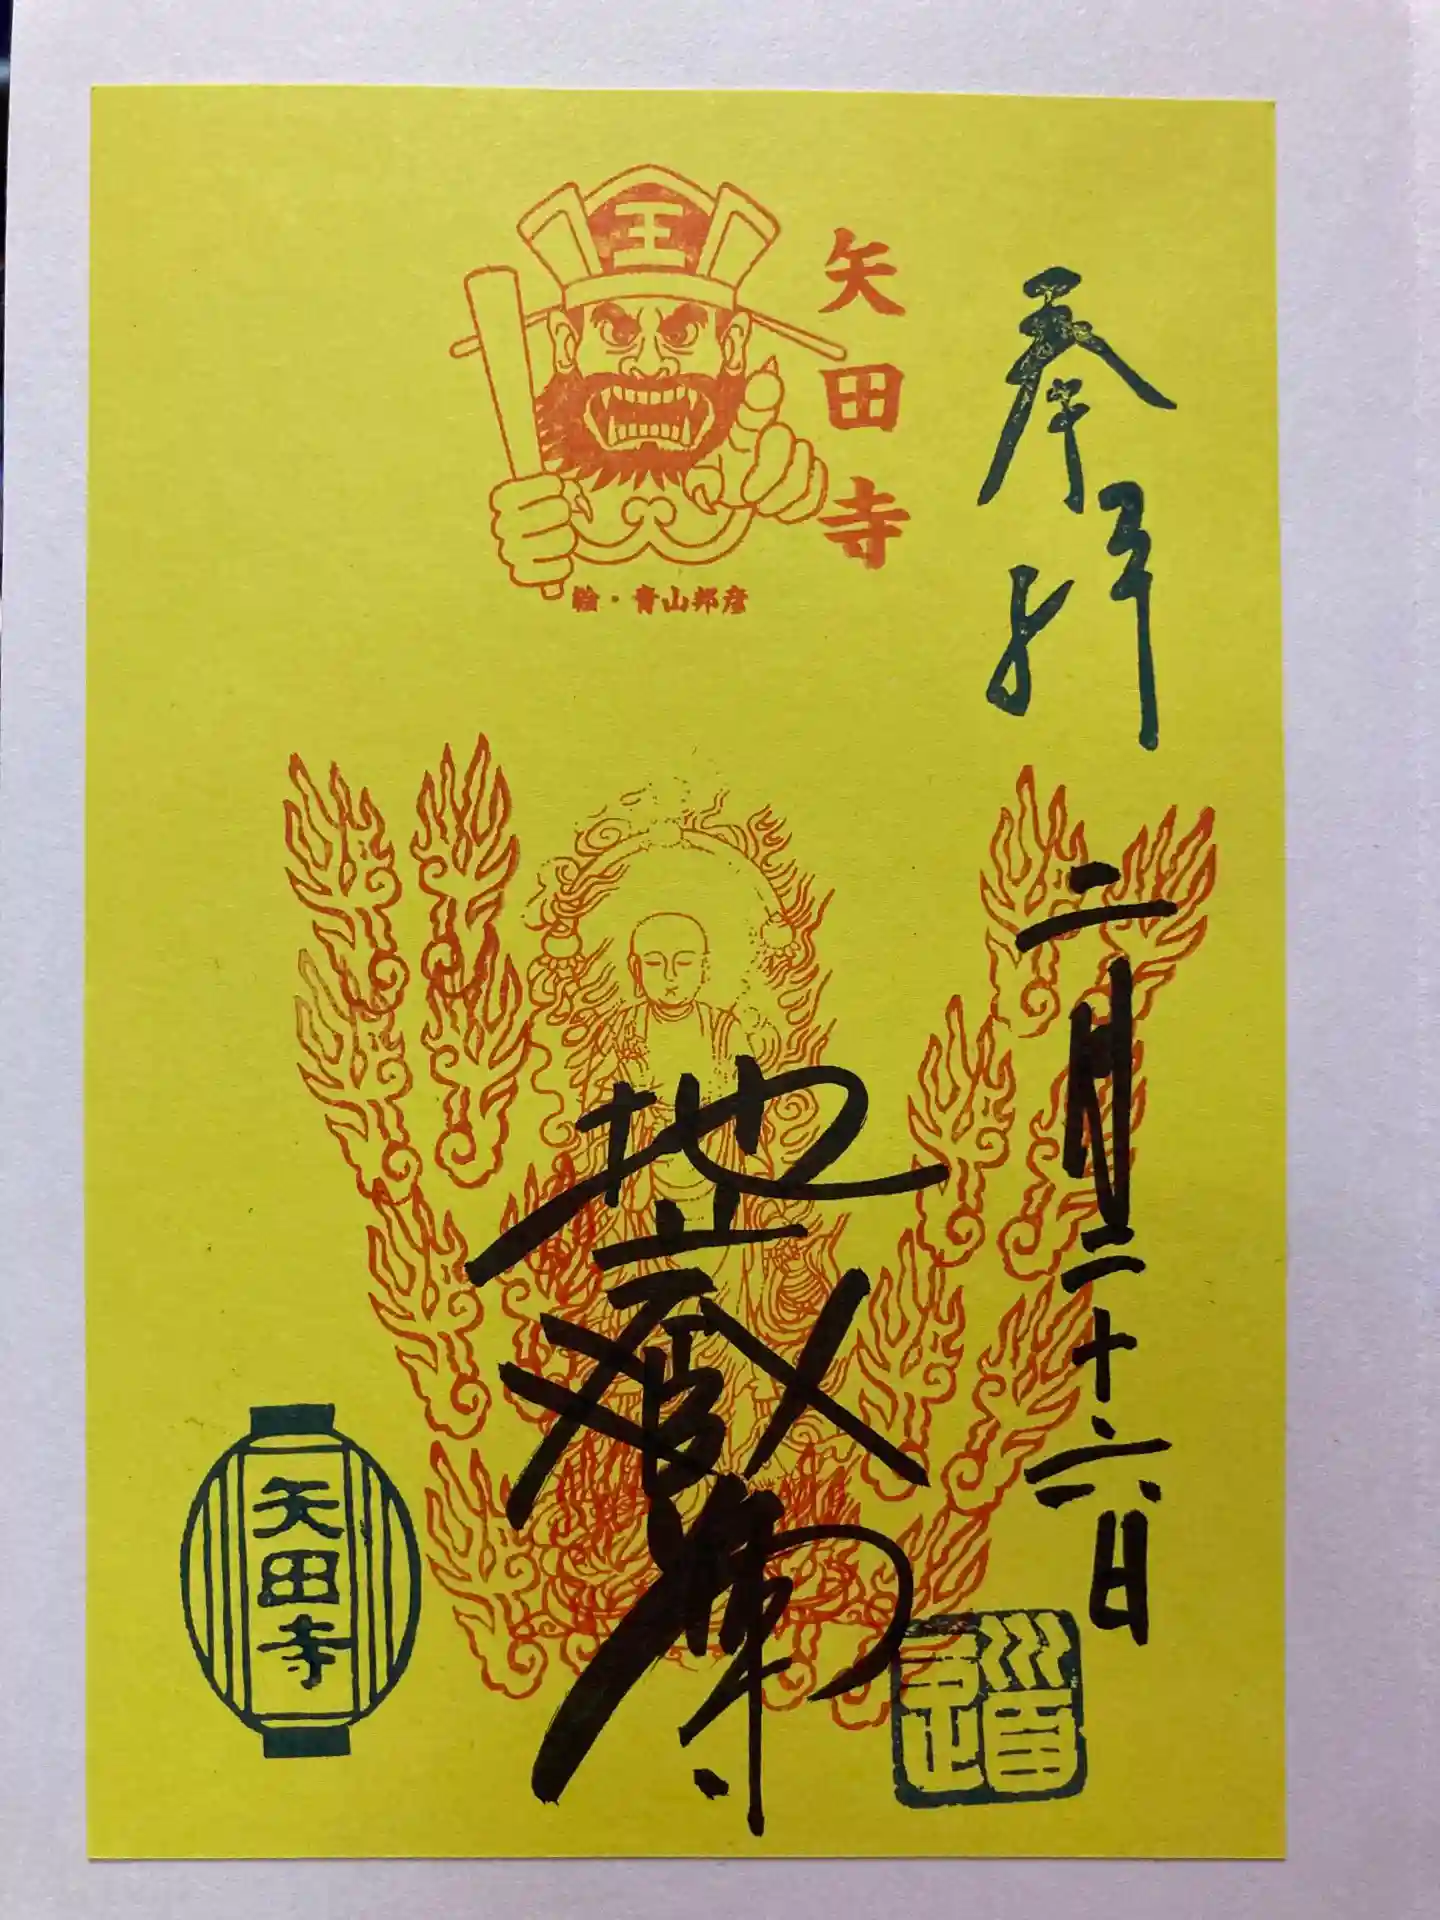 奉拝
二月二十六日
矢田寺
王
絵・青山邦彦
地蔵尊
矢田寺